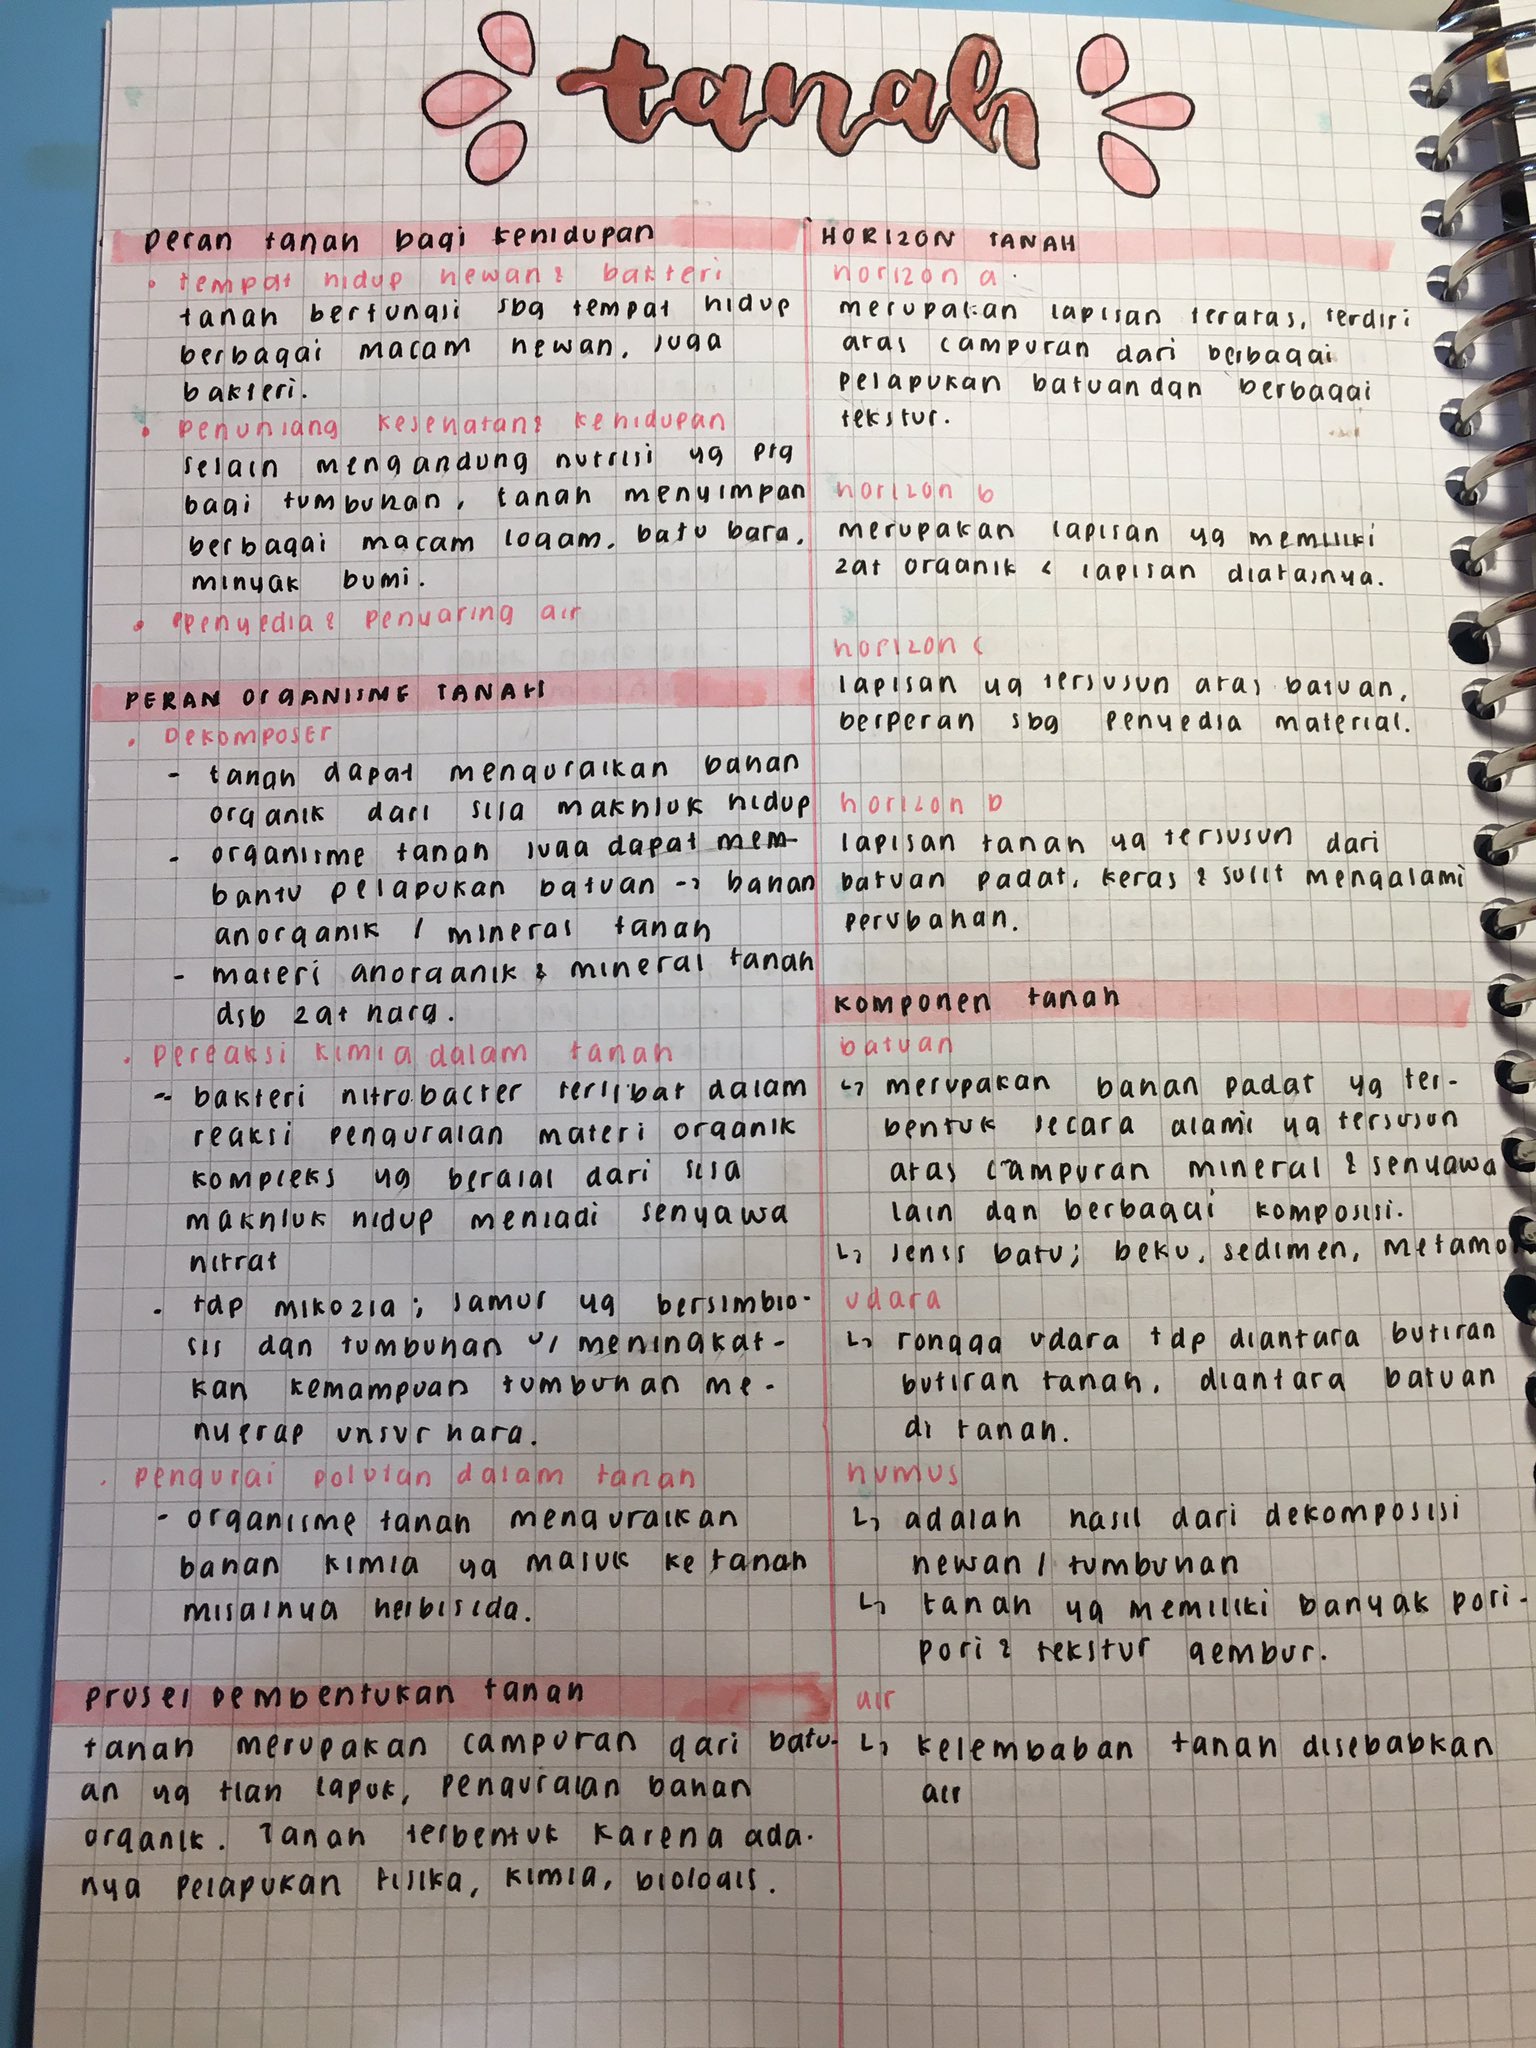 tanah
peran tanah bagi kehidupan
• tempat hidup hewan & bakteri
tanah berfungsi sbg tempat hidup
berbagai macam hewan, juga
bakteri.
• penunjang kesehatan & kehidupan
selain mengandung nutrisi yg ptg
bagi tumbuhan, tanah menyimpan
berbagai macam logam, batu bara,
minyak bumi.
• penyedia & penyaring air
PERAN ORGANISME TANAH
• DEKOMPOSER
- tanah dapat menguraikan bahan
organik dari sisa makhluk hidup
- organisme tanah juga dapat mem-
bantu pelapukan batuan → bahan
anorganik / mineral tanah
- materi anorganik & mineral tanah
dsb zat hara.
• pereaksi kimia dalam tanah
- bakteri nitrobacter terlibat dalam
reaksi penguraian materi organik
kompleks yg berasal dari sisa
makhluk hidup menjadi senyawa
nitrat
- tdp mikozia; jamur yg bersimbio-
sis dgn tumbuhan u/ meningkat-
kan kemampuan tumbuhan me-
nyerap unsur hara.
• pengurai polutan dalam tanah
- organisme tanah menguraikan
bahan kimia yg masuk ke tanah
misalnya herbisida.
proses pembentukan tanah
tanah merupakan campuran dari batu-
an yg tlah lapuk, penguraian bahan
organik. Tanah terbentuk karena ada-
nya pelapukan fisika, kimia, biologis.
HORIZON TANAH
horizon a
merupakan lapisan teratas, terdiri
atas campuran dari berbagai
pelapukan batuan dan berbagai
tekstur.
horizon b
merupakan lapisan yg memiliki
zat organik < lapisan diatasnya.
horizon c
lapisan yg tersusun atas batuan,
berperan sbg penyedia material.
horizon D
lapisan tanah yg tersusun dari
batuan padat, keras & sulit mengalami
perubahan.
komponen tanah
batuan
↳ merupakan bahan padat yg ter-
bentuk secara alami yg tersusun
atas campuran mineral & senyawa
lain dan berbagai komposisi.
↳ jenis batu; beku, sedimen, metamo
udara
↳ rongga udara tdp diantara butiran
butiran tanah, diantara batuan
di tanah.
humus
↳ adalah hasil dari dekomposisi
hewan / tumbuhan
↳ tanah yg memiliki banyak pori-
pori & tekstur gembur.
air
↳ kelembaban tanah disebabkan
air